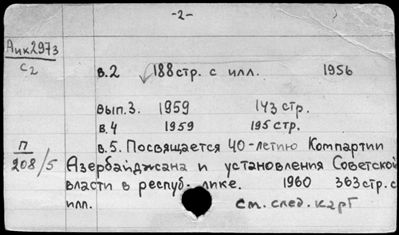 -2-
Аик2973
С2
в.2 188стр. с илл. 1956
вып.3. 1959 143 стр.
в.4 1959 195 стр.
П
208/5
в.5. Посвящается 40-летию Компартии
Азербайджана и установления Советской
власти в респуб- лике. 1960 363стр.с
илл. См. след. карт